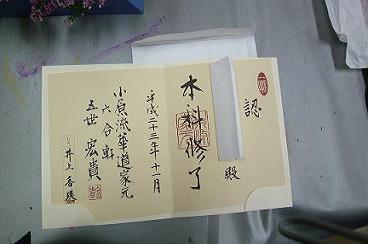 認
殿
本科修了
平成二十三年十一月
小原流華道家元
六合軒
五世 宏貴
井上香瑛